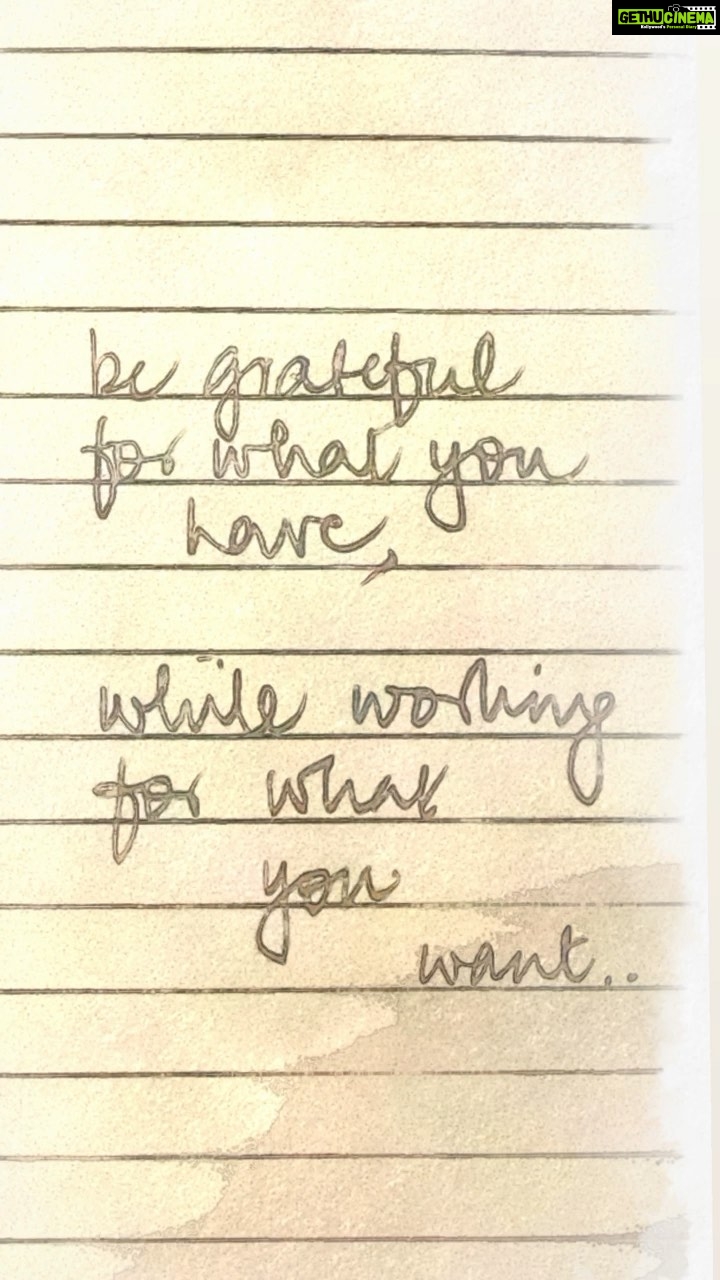 GETHUCINEMA
Kollywood's Personal Diary
be grateful
for what you
have,
while working
for what
you
want..